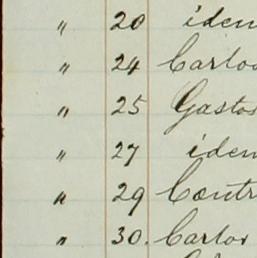 " 20 iden
" 24 Carlos
" 25 Gastos
" 27 iden
" 29 Contr
" 30. Carlos